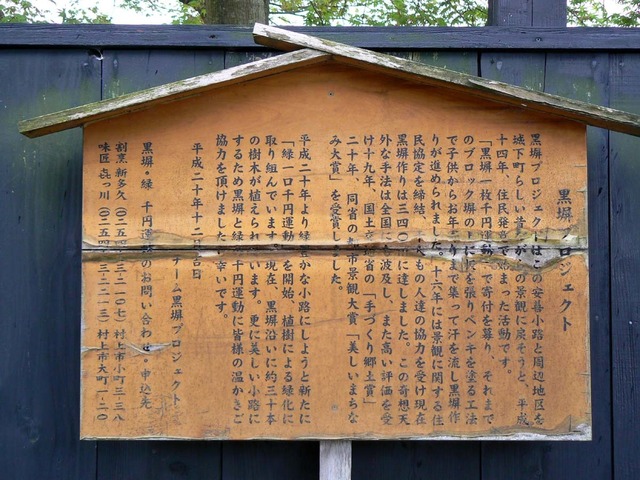 黒塀プロジェクト
黒塀プロジェクトはこの安善小路と周辺地区を
城下町らしい昔ながらの景観に戻そうと、平成
十四年、住民発案で始まった活動です。
「黒塀一枚千円運動」で寄付を募り、それまで
のブロック塀の上に板を張りペンキを塗る工法
で子供からお年寄りまで集って汗を流し黒塀作
りが進められました。十六年には景観に関する住
民協定を締結、人々の協力を受け現在
黒塀作りは三四〇に達しました。この奇想天
外な手法は全国に波及し、また高い評価を受
け十九年、国土交通省の「手づくり郷土賞」
二十年、同省の都市景観大賞「美しいまちな
み大賞」を受賞しました。
平成二十年より緑豊かな小路にしようと新たに
「緑一口千円運動」を開始、植樹による緑化に
取り組んでいます。現在、黒塀沿いに約三十本
の樹木が植えられています。更に美しい小路に
するため黒塀と緑の千円運動に皆様の温かきご
協力を頂けましたら幸いです。
平成二十年十二月吉日
チーム黒塀プロジェクト
黒塀・緑 千円運動のお問い合わせ・申込先
割烹 新多久(〇二五四・五三・二一〇七)村上市小町三・三八
味匠 㐂っ川(〇二五四・五三・二二一三)村上市大町一・二〇